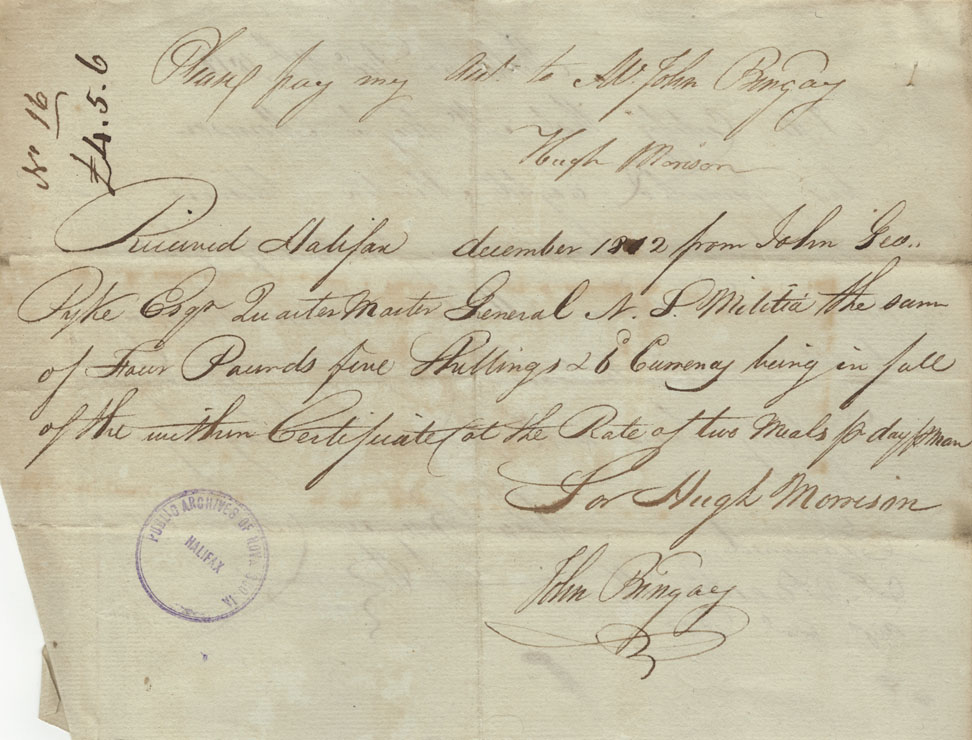 No 16
£4.5.6
Please pay my Acct. to Mr John Bingay
Hugh Morison
Received Halifax december 1812 from John Geo..
Pyke Esqr Quarter Master General N. S. Militia the sum
of Four Pounds five Shillings & 6d Currency being in full
of the within Certificate (at the Rate of two Meals pr day pr Man
For Hugh Morrison
John Bingay
PUBLIC ARCHIVES OF NOVA SCOTIA
HALIFAX